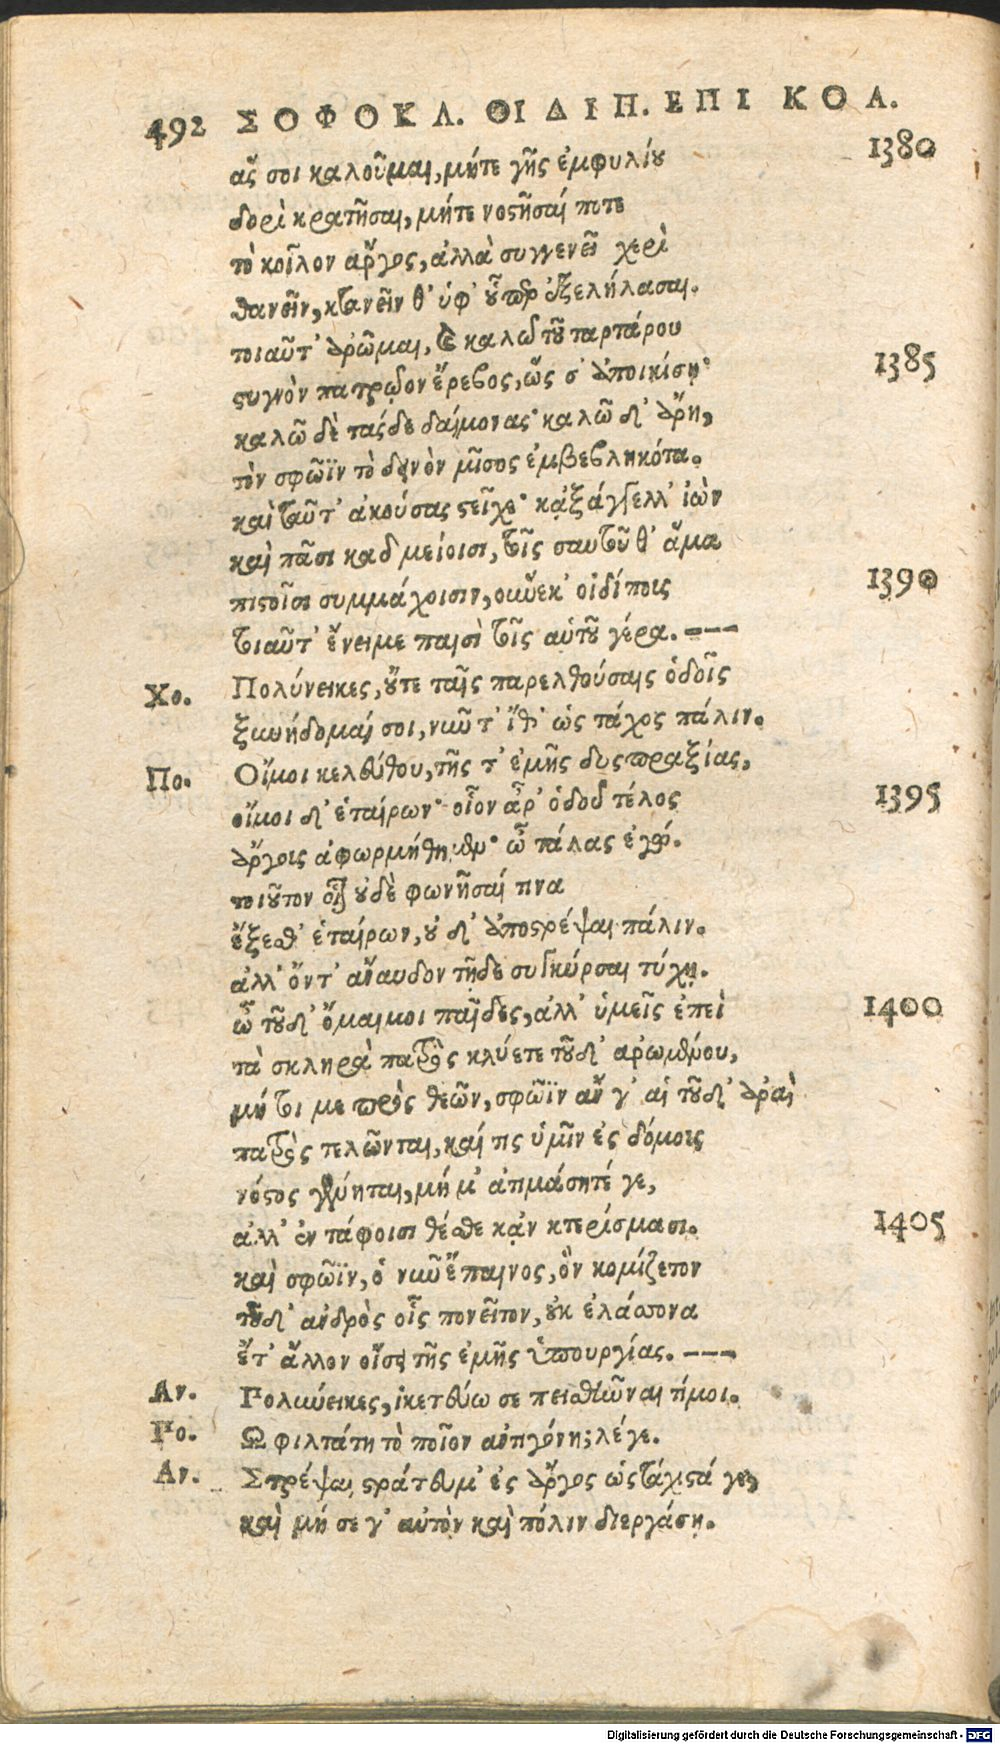 492 ΣΟΦΟΚΛ. ΟΙΔΙΠ. ΕΠΙ ΚΟΛ.
ἅς σοι καλοῦμαι, μήτε γῆς ἐμφυλίου 1380
δορὶ κρατῆσαι, μήτε νοστῆσαί ποτε
τὸ κοῖλον ἄργος, ἀλλὰ συγγενεῖ χερὶ
θανεῖν, κτανεῖν θ' ὑφ' οὗπερ ἐξελήλασαι.
τοιαῦτ' ἀρῶμαι, καὶ καλῶ τοῦ ταρτάρου
στυγνὸν πατρῷον ἔρεβος, ὥς σ' ἀποικίσῃ· 1385
καλῶ δὲ τάσδε δαίμονας· καλῶ δ' ἄρη,
τὸν σφῶϊν τὸ δεινὸν μῖσος ἐμβεβληκότα.
καὶ ταῦτ' ἀκούσας στεῖχε· κᾀξάγγελλ' ἰὼν
καὶ πᾶσι καδμείοισι, τοῖς σαυτοῦ θ' ἅμα
πιστοῖσι συμμάχοισιν, οὕνεκ' οἰδίπους 1390
τοιαῦτ' ἔνειμε παισὶ τοῖς αὑτοῦ γέρα. ---
Χο. Πολύνεικες, οὔτε ταῖς παρελθούσαις ὁδοῖς
ξυνήδομαί σοι, νῦν τ' ἴθ' ὡς τάχος πάλιν.
Πο. Οἴμοι κελεύθου, τῆς τ' ἐμῆς δυσπραξίας,
οἴμοι δ' ἑταίρων· οἷον ἆρ' ὁδοῦ τέλος 1395
ἄργους ἀφωρμήθημεν· ὦ τάλας ἐγώ.
τοιοῦτον οἷον οὐδὲ φωνῆσαί τινα
ἔξεσθ' ἑταίρων, οὐδ' ἀποστρέψαι πάλιν.
ἀλλ' ὄντ' ἄναυδον τῇδε συγκύρσαι τύχῃ.
ὦ τοῦδ' ὅμαιμοι παῖδες, ἀλλ' ὑμεῖς ἐπεὶ 1400
τὰ σκληρὰ πατρὸς κλύετε τοῦδ' ἀρωμένου,
μή τοι με πρὸς θεῶν, σφῶϊν ἄν γ' αἱ τοῦδ' ἀραὶ
πατρὸς τελῶνται, καί τις ὑμῖν ἐς δόμους
νόστος γένηται, μή μ' ἀτιμάσητέ γε,
ἀλλ' ἐν τάφοισι θέσθε κᾀν κτερίσμασι. 1405
καὶ σφῶϊν, ὁ νῦν ἔπαινος, ὃν κομίζετον
τοῦδ' ἀνδρὸς οἷς πονεῖτον, οὐκ ἐλάσσονα
ἔτ' ἄλλον οἴσει τῆς ἐμῆς ὑπουργίας. ---
Αν. Πολύνεικες, ἱκετεύω σε πεισθῆναι τί μοι.
Πο. Ω φιλτάτη τὸ ποῖον ἀντιγόνη; λέγε.
Αν. Στρέψαι στράτευμ' ἐς ἄργος ὡς τάχιστά γε,
καὶ μή σε γ' αὐτὸν καὶ πόλιν διεργάσῃ.
Digitalisierung gefördert durch die Deutsche Forschungsgemeinschaft - DFG